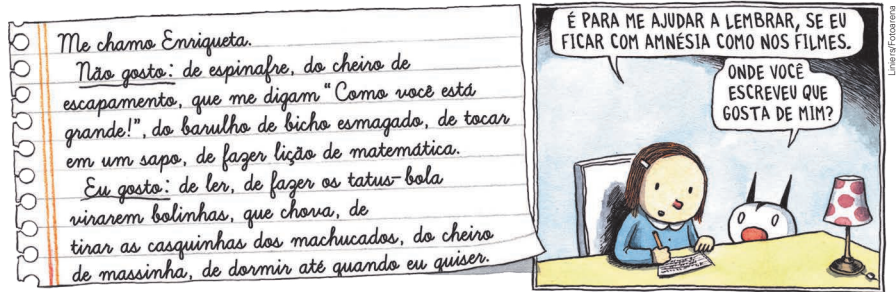 Me chamo Enriqueta.
Não gosto: de espinafre, do cheiro de
escapamento, que me digam "Como você está
grande!", do barulho de bicho esmagado, de tocar
em um sapo, de fazer lição de matemática.
Eu gosto: de ler, de fazer os tatus-bola
virarem bolinhas, que chova, de
tirar as casquinhas dos machucados, do cheiro
de massinha, de dormir até quando eu quiser.
É PARA ME AJUDAR A LEMBRAR, SE EU
FICAR COM AMNÉSIA COMO NOS FILMES.
ONDE VOCÊ
ESCREVEU QUE
GOSTA DE MIM?
Liniers/Fotoarena